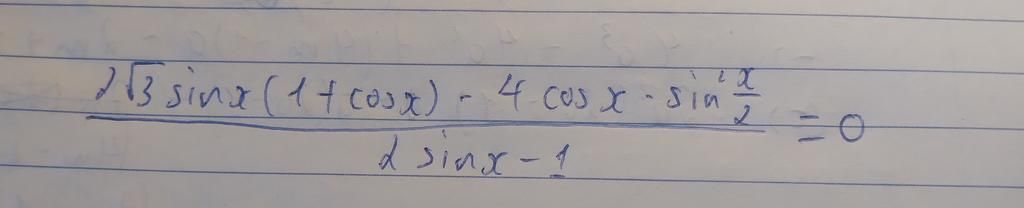 2√3 sinx (1 + cosx) - 4 cos x · sin² x/2
2 sinx - 1
= 0